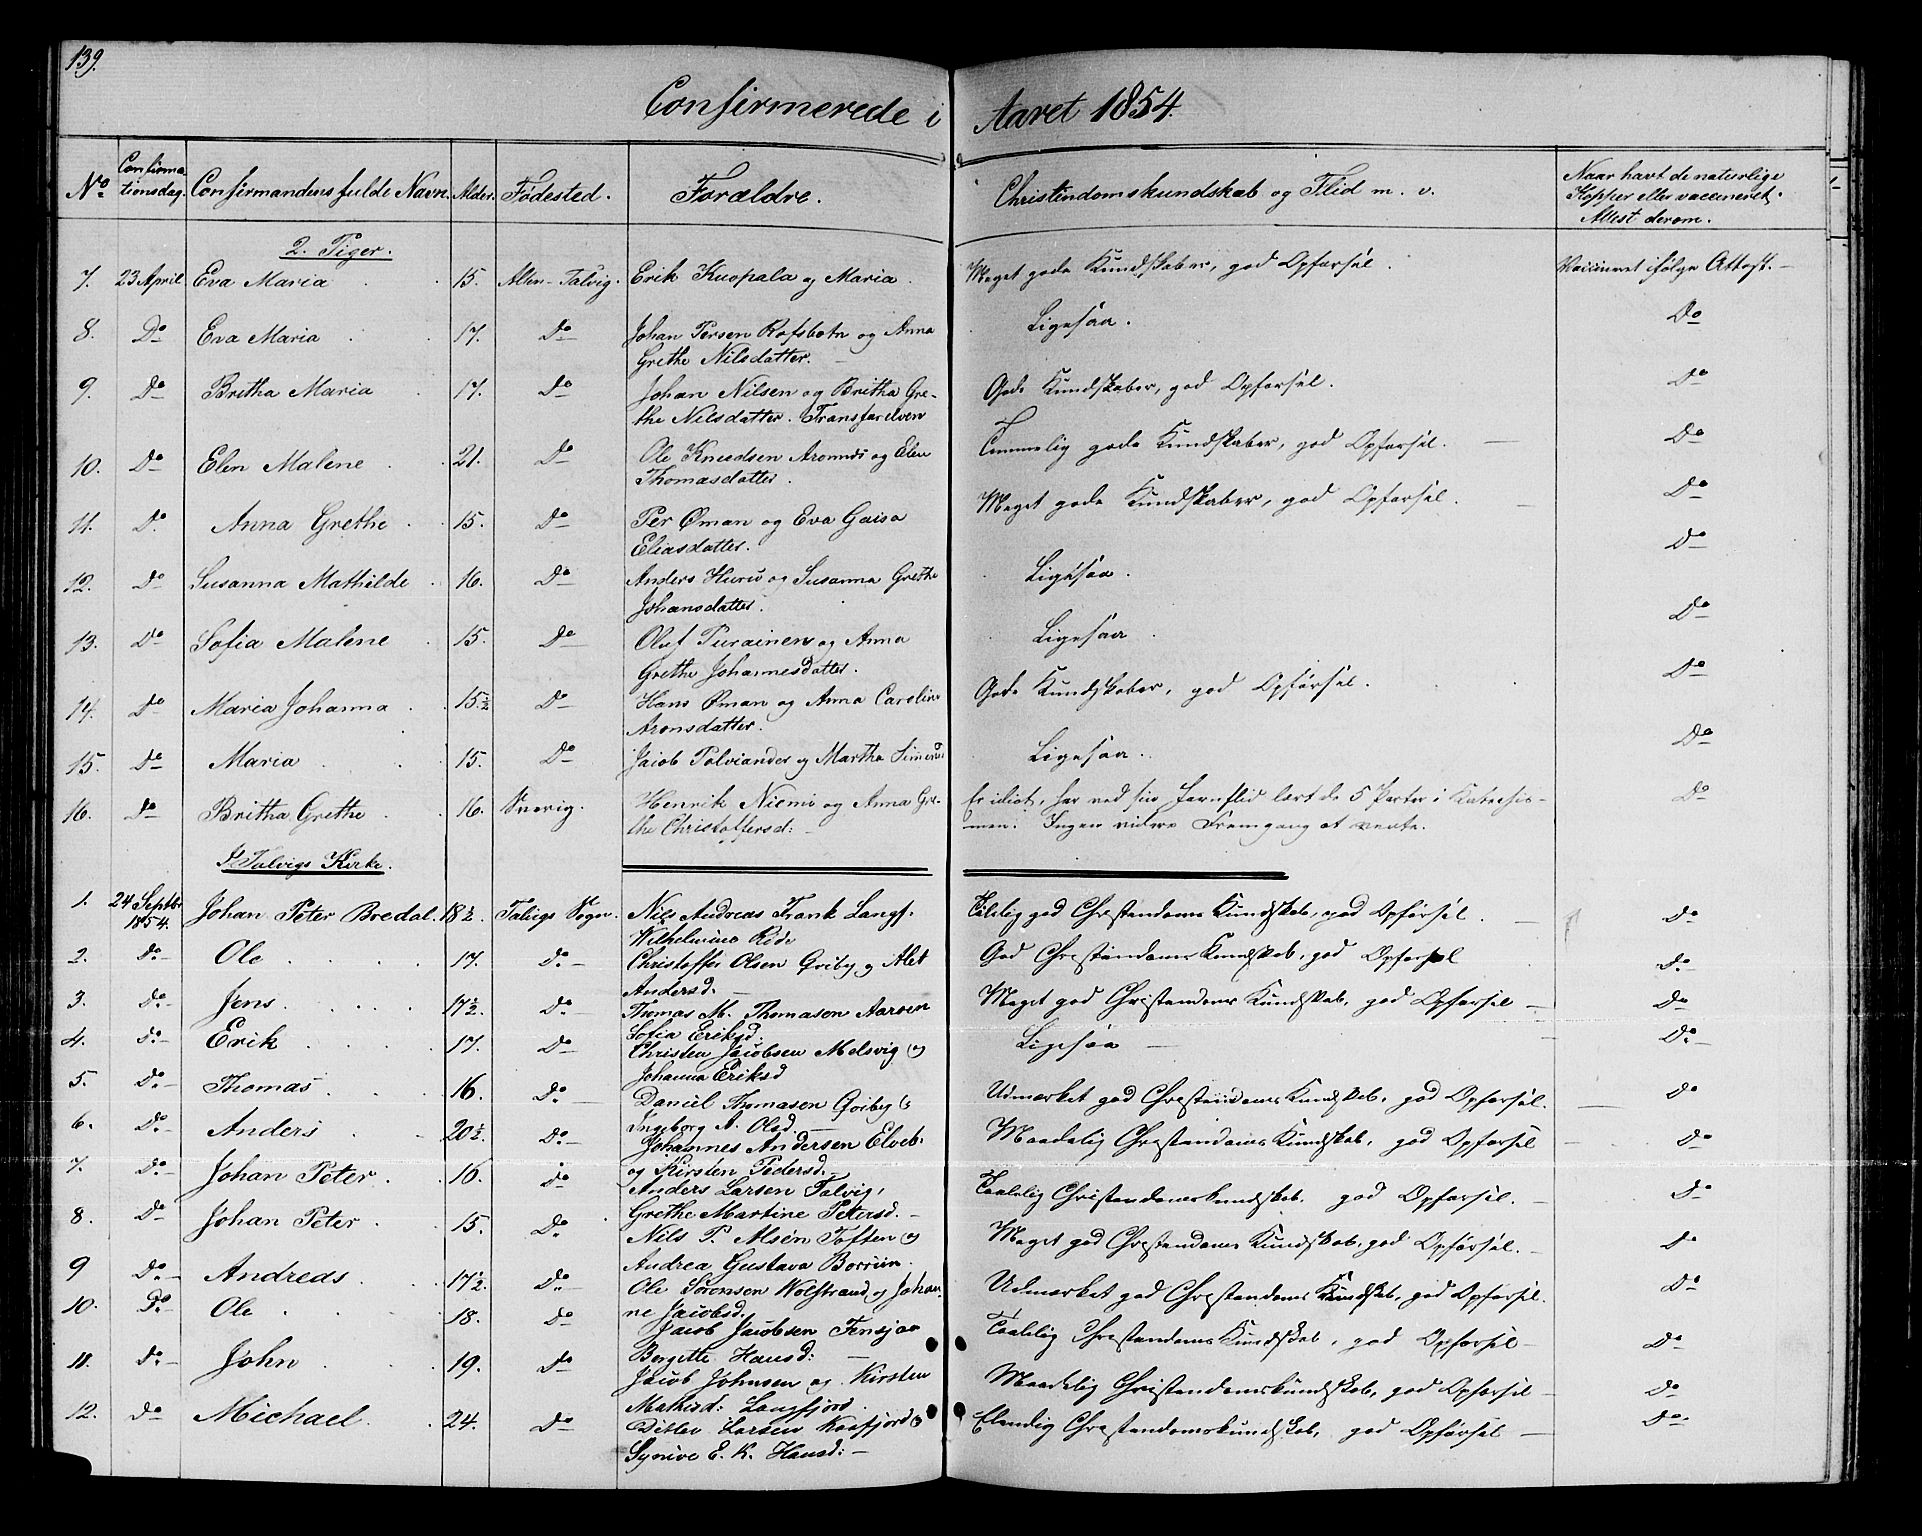 139.
Confirmerede i Aaret 1854.
No. Confirmationsdag. Confirmandens fulde Navn. Alder. Fødested. Forældre. Christendomskundskab og Flid m. v. Naar havt de naturlige Kopper eller vaccineret. Attest derom.
2. Piger.
7. 23 April Eva Maria 15. Alten-Talvig. Erik Kuopala og Maria. Meget gode Kundskaber, god Opførsel. Vaccineret ifølge Attest.
8. Do Eva Maria 17. Do Johan Persen Rafsbotn og Anna Ligesaa. Do
Grethe Nilsdatter.
9. Do Britha Maria 17. Do Johan Nilsen og Britha Gre- Gode Kundskaber, god Opførsel. Do
the Nilsdatter. Transfarelven
10. Do Elen Malene 21. Do Ole Knudsen Aronnes og Elen Temmelig gode Kundskaber, god Opførsel. Do
Thomasdatter.
11. Do Anna Grethe 15. Do Per Øman og Eva Gaisa Meget gode Kundskaber, god Opførsel. Do
Eliasdatter.
12. Do Susanna Mathilde 16. Do Anders Huru og Susanna Grethe Ligesaa. Do
Johansdatter.
13. Do Sofia Malene 15. Do Oluf Purainen og Anna Ligesaa Do
Grethe Johannesdatter.
14. Do Maria Johanna 15½ Do Hans Øman og Anna Caroline Gode Kundskaber, god Opførsel. Do
Aronsdatter.
15. Do Maria 15. Do Jacob Palviander og Martha Ligesaa. Do
16. Do Britha Grethe 16. Sverig. Henrik Niemi og Anna Gre- Er idiot, har ved sin Jernflid lært de 5 Parter i Katechis- Do
the Christoffersd: men. Ingen videre Fremgang at vente.
I Talvigs Kirke.
1. 24 Septbr 1854. Johan Peter Bredal 18½. Talvigs Sogn. Nils Andreas Frank Langf. Taalelig god Christendoms Kundskab, god Opførsel. Do
Wilhelmine Ride
2. Do Ole 17. Do Christoffer Olsen Qviby og Alet God Christendoms Kundskab, god Opførsel Do
Andersd.
3. Do Jens 17½. Do Thomas M. Thomasen Aarøen Meget god Christendoms Kundskab, god Opførsel Do
Sofia Eriksd.
4. Do Erik 17. Do Christen Jacobsen Melsvig og Ligesaa Do
Johanna Eriksd
5. Do Thomas 16. Do Daniel Thomasen Qviby og Udmærket god Christendoms Kundskab, god Opførsel. Do
Ingeborg A. Olsd.
6. Do Anders 20½. Do Johannes Andersen Elveb. Maadelig Christendoms Kundskab, god Opførsel Do
og Kirsten Pedersd.
7. Do Johan Peter 16. Do Anders Larsen Talvig, Taalelig Christendomskundskab, god Opførsel. Do
Grethe Martine Petersd.
8. Do Johan Peter 15. Do Nils P. Alsén Toften og Meget god Christendoms Kundskab, god Opførsel. Do
Andrea Gustava
9 Do Andreas 17½. Do Ole Sørensen Wolstrand og Johan- Udmærket god Christendoms Kundskab, god Opførsel. Do
ne Jacobsd.
10. Do Ole 18. Do Jacob Jacobsen Taalelig Christendoms Kundskab, god Opførsel Do
Bergitte Hansd:
11. Do John 19. Do Jacob Johnsen og Kirsten Maadelig Christendomskundskab, god Opførsel Do
Mathisd: Langfjord.
12. Do Michael 24. Do Ditlev Larsen Kaafjord og Elendig Christendomskundskab, god Opførsel Do
Synive E. K. Hansd: